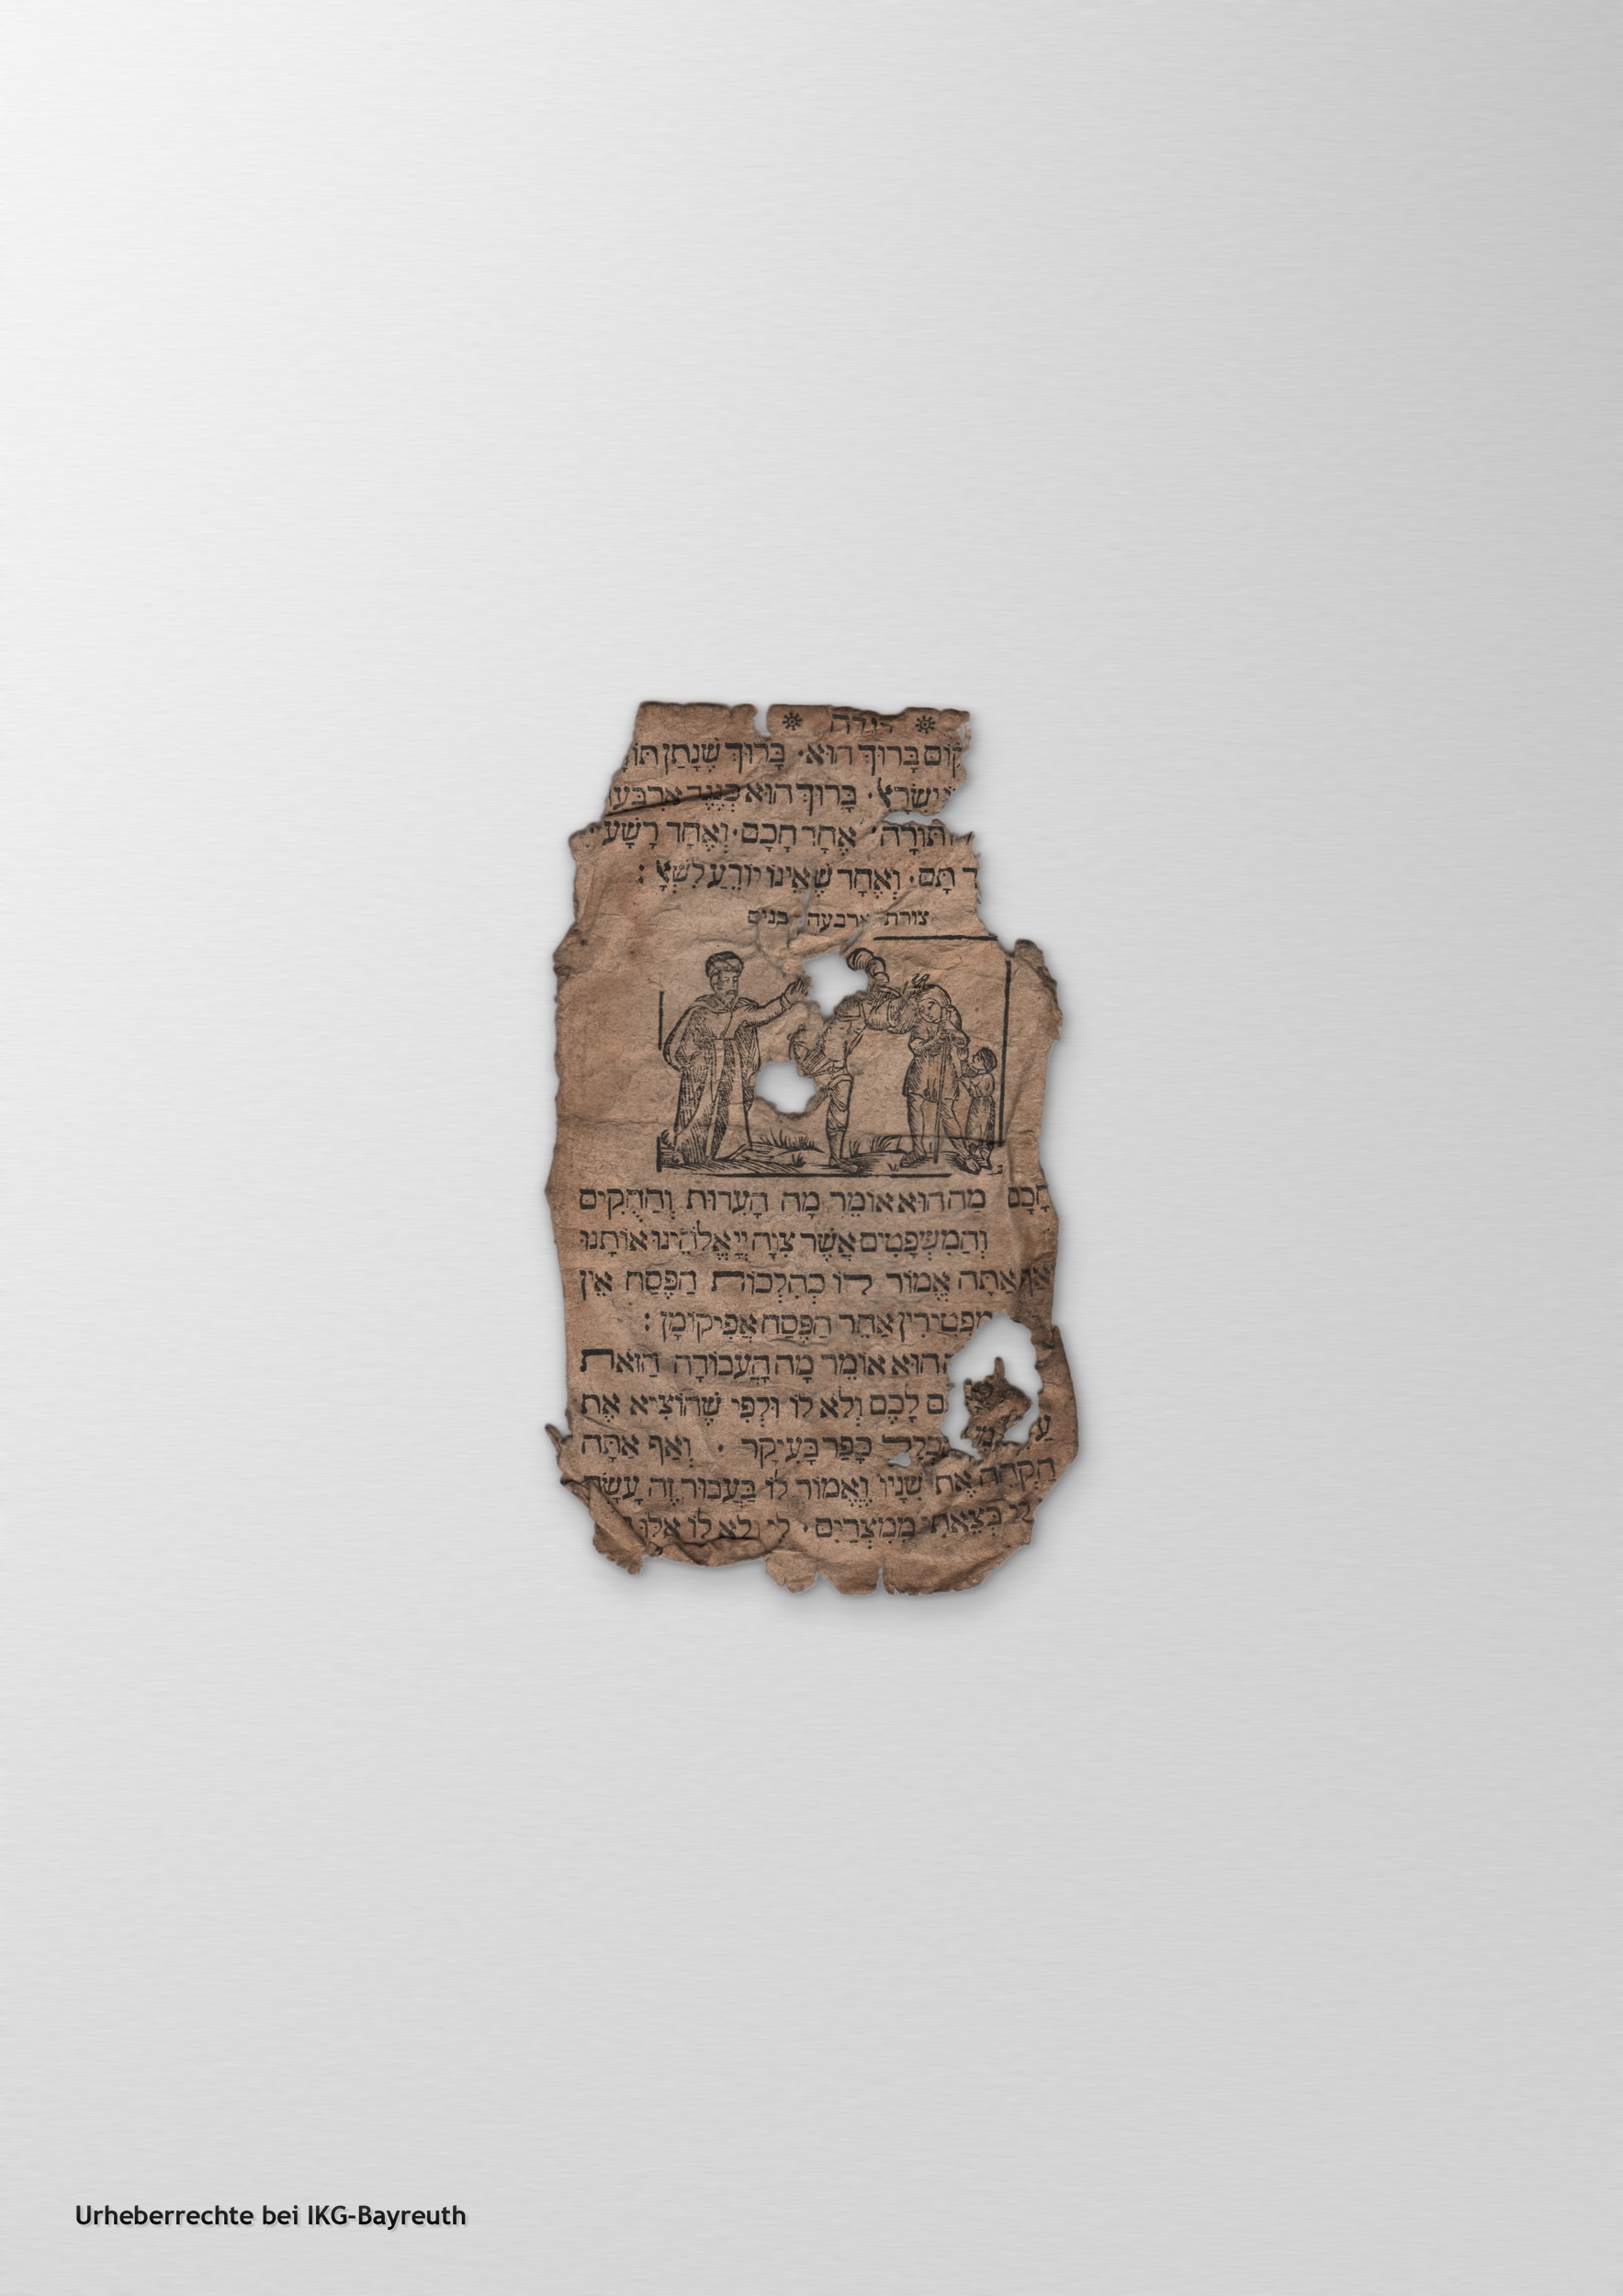 קוֹם בָּרוּךְ הוּא · בָּרוּךְ שֶׁנָתַן תּוֹ
יִשְׂרָאֵל · בָּרוּךְ הוּא כְּנֶגֶד אַרְבָּעָ
תּוֹרָה · אֶחָד חָכָם · וְאֶחָד רָשָׁע
תָּם · וְאֶחָד שֶׁאֵינוֹ יוֹדֵעַ לִשְׁאָל :
צורת ארבעה בנים
חָכָם מַה הוּא אוֹמֵר מָה הָעֵדוּת וְהַחֻקִים
וְהַמִשְׁפָּטִים אֲשֶׁר צִיָה יְיָ אֱלֹהֵינוּ אוֹתָנוּ
אַף אַתָּה אֱמוֹר לוֹ כְּהִלְכוֹת הַפֶּסַח אֵין
מַפְטִירִין אַחַר הַפֶּסַח אֲפִיקוֹמָן :
הוּא אוֹמֵר מָה הָעֲבוֹדָה הַזאת
לָכֶם וְלֹא לוֹ וּלְפִי שֶׁהוֹצִיא אֶת
כָּפַר בָּעִיקָר · וְאַף אַתָּה
הַקְהֵה אֶת שִׁנָיו וֶאֱמוֹר לוֹ בַּעֲבוּר זֶה עָשָׂה
בְּצֵאתִי מִמִצְרַיִם · לִי וְלֹא לוֹ אִלּוּ
Urheberrechte bei IKG-Bayreuth